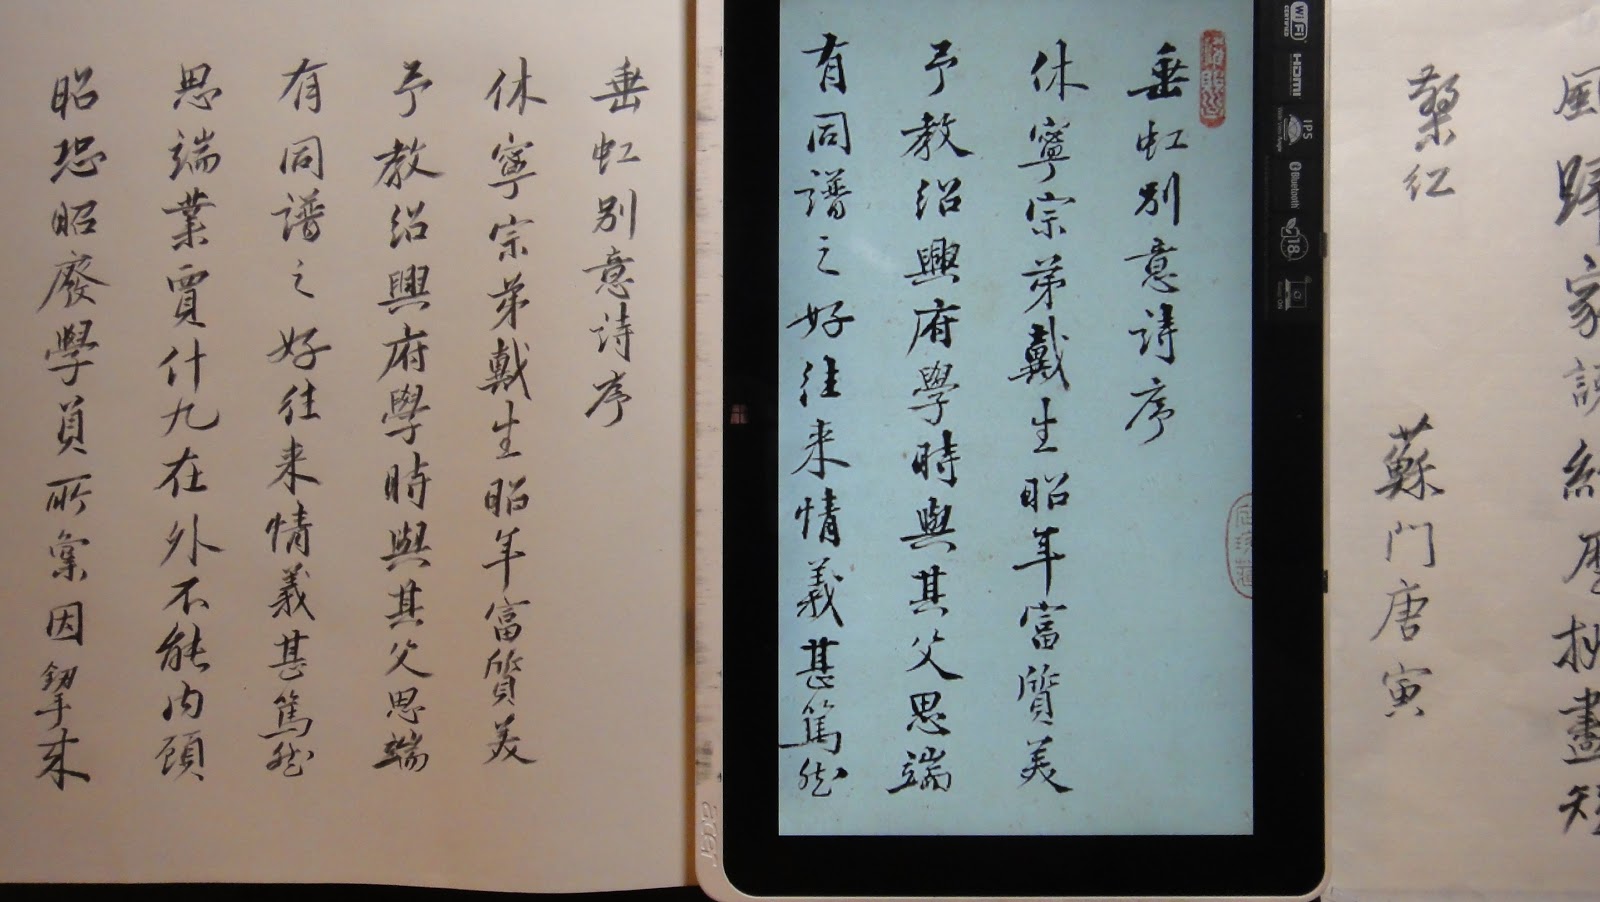 垂虹別意詩序
休寧宗弟戴生昭年富質美
予教紹興府學時與其父思端
有同譜之好往来情義甚篤然
思端業賈什九在外不能内顧
昭恐昭廢學員所稟因挈来
垂虹別意詩序
休寧宗弟戴生昭年富質美
予教紹興府學時與其父思端
有同譜之好往来情義甚篤然
acer
WiFi
CERTIFIED
HDMI
IPS
Bluetooth
18
風歸家
蘇門唐寅